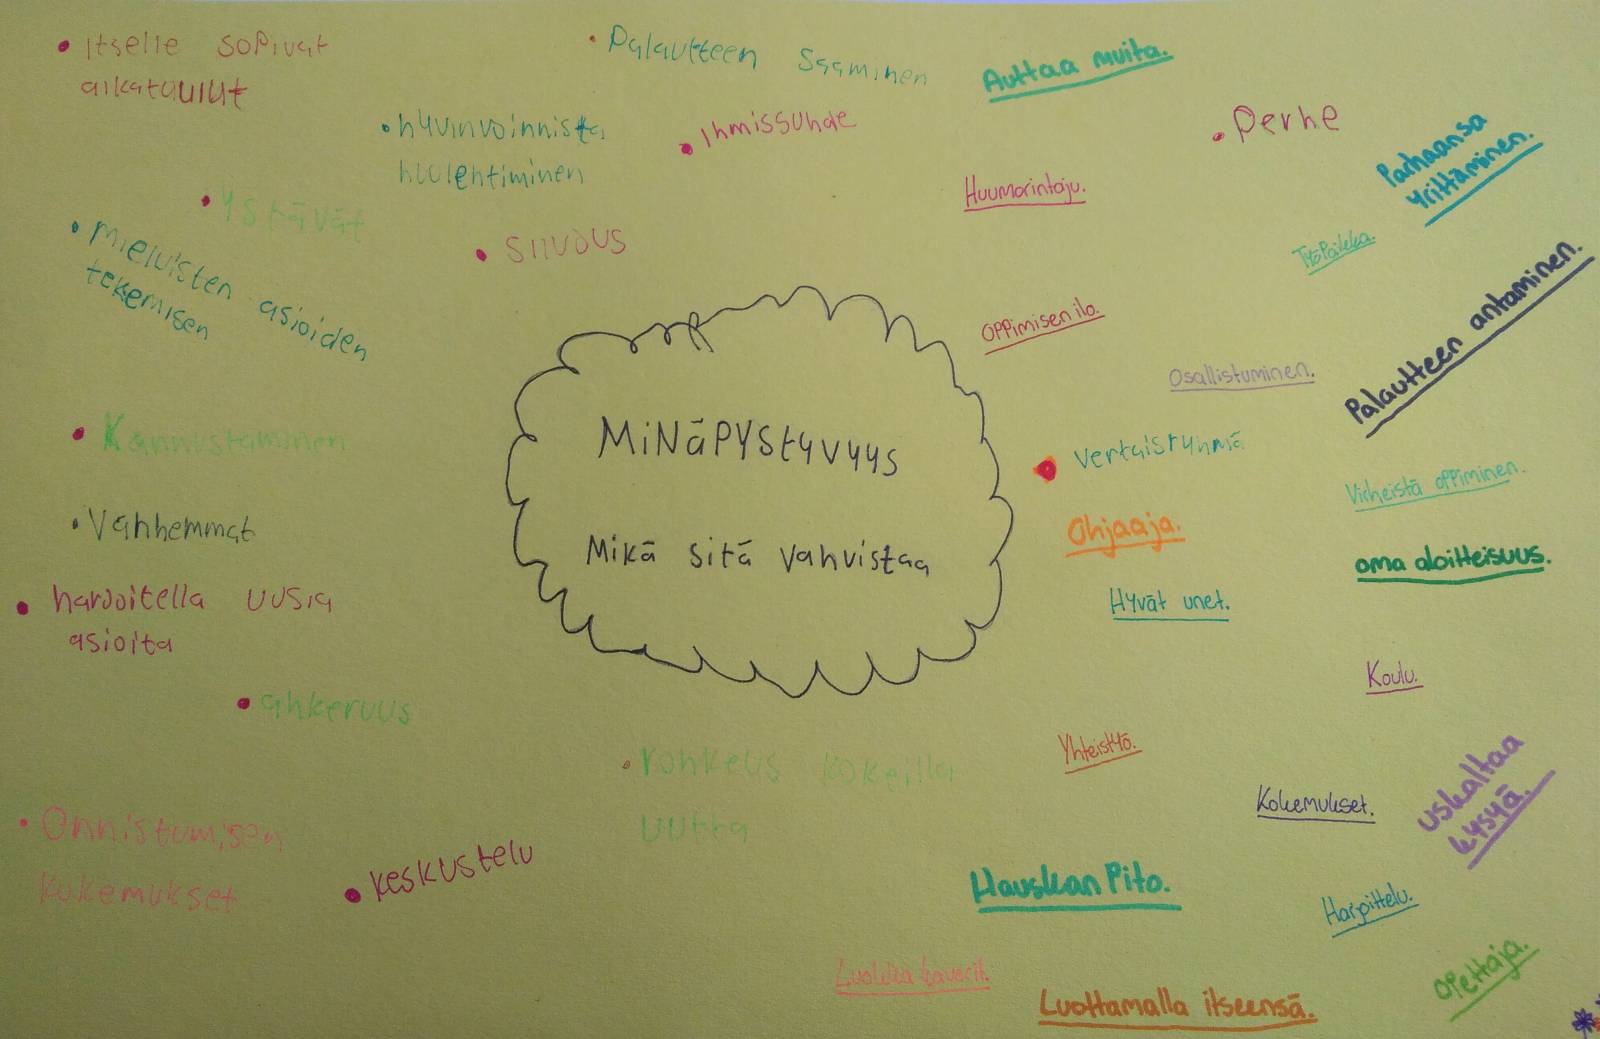 Itselle sopivat
aikataulut
Palautteen saaminen
Auttaa muita.
hyvinvoinnista
huolehtiminen
Ihmissuhde
Perhe
Parhaansa
yrittäminen.
Huumorintaju.
ystävät
mieluisten asioiden
tekemisen
siivous
Työpaikka.
Palautteen antaminen.
oppimisen ilo.
Osallistuminen.
MINÄPYStyvyys
Mikä sitä vahvistaa
Kannustaminen
vertaisryhmä
Virheistä oppiminen.
Vanhemmat
Ohjaaja.
oma aloitteisuus.
harjoitella uusia
asioita
Hyvät unet.
Koulu.
ahkeruus
rohkeus kokeilla
uutta
Yhteistyö.
Kokemukset.
uskaltaa
kysyä.
Onnistumisen
kokemukset
keskustelu
Hauskan Pito.
Harjoittelu.
Opettaja.
Luokka kaverit.
Luottamalla itseensä.